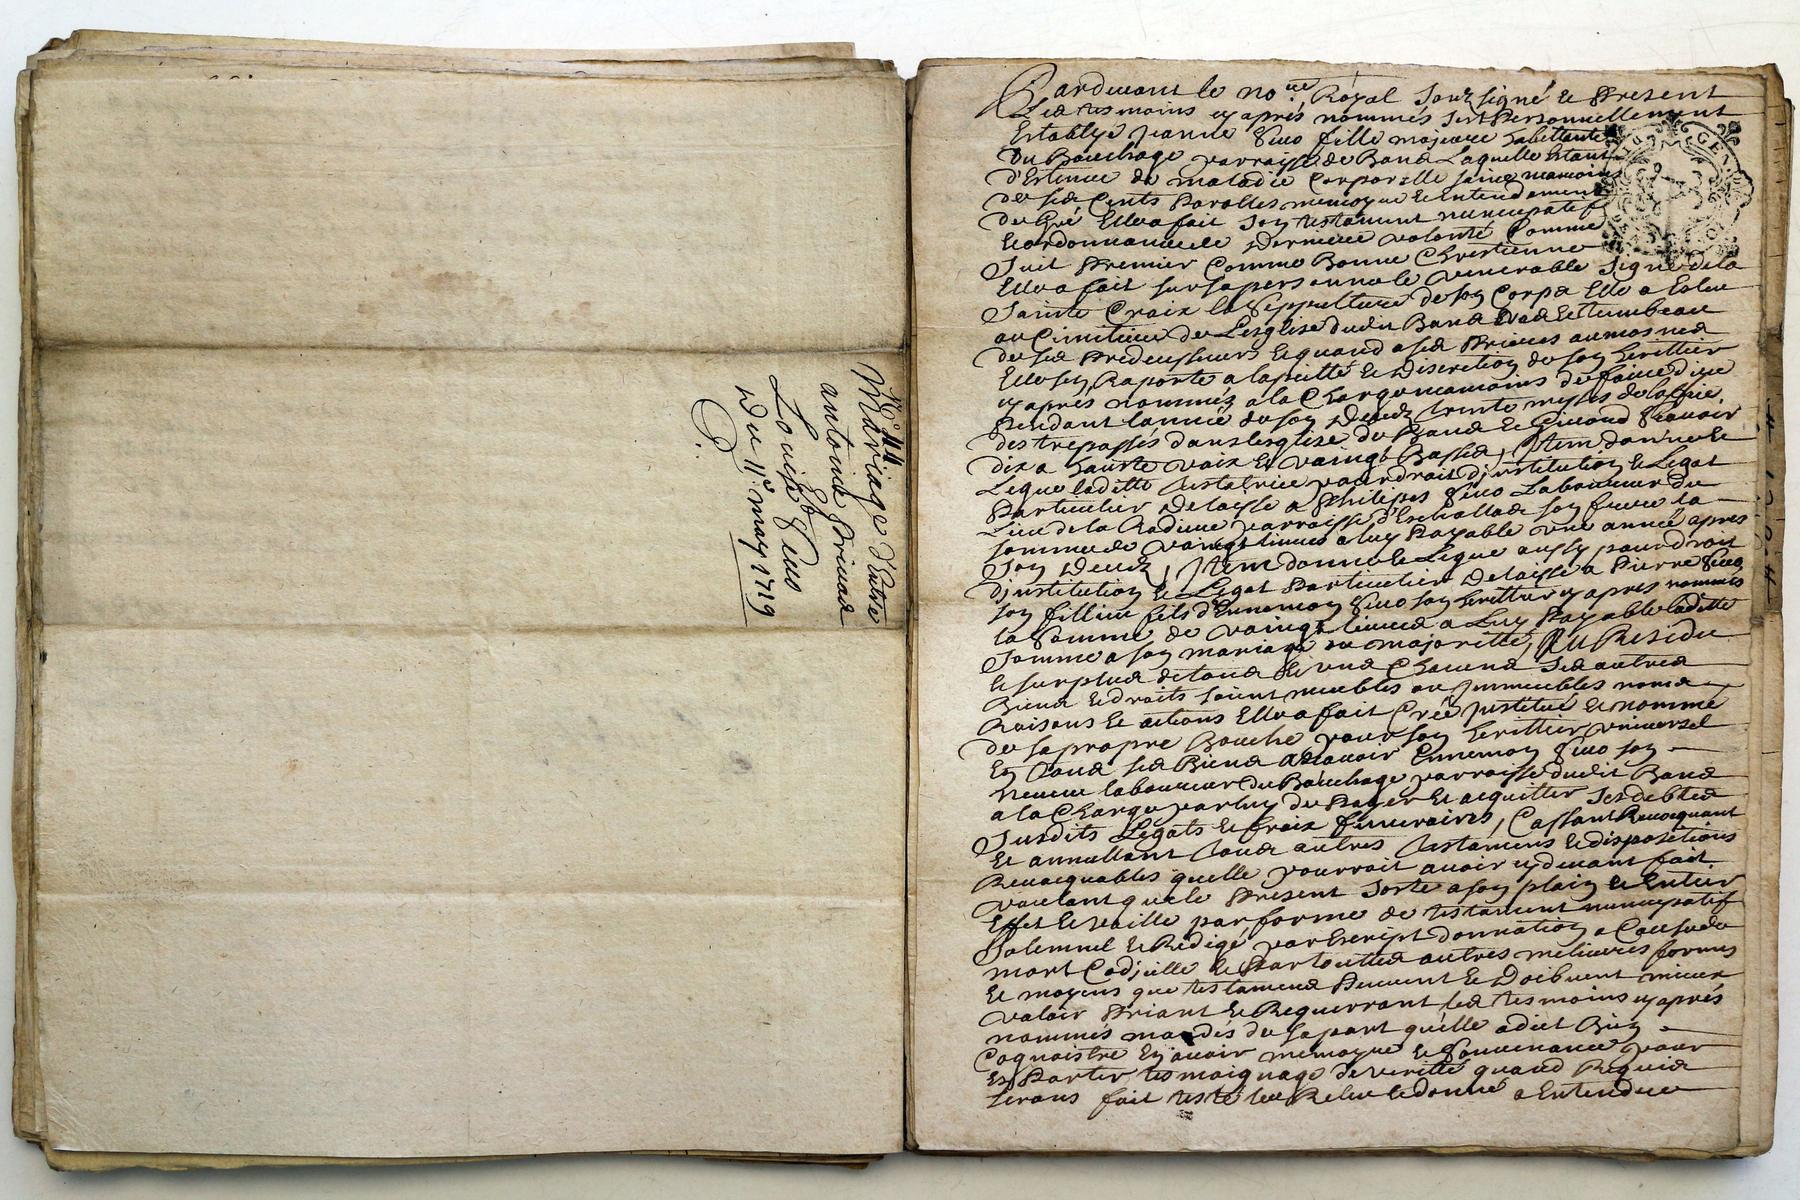 N° 44
Mariage d'Entre
antoine privad
Et
Louise Veuo
Du 11e may 1719
Pardevant le no.re Royal Souzsigné et Present
Les tesmoins cy après nommés s'est Personnellement
Establye Jeanne fille majeure habittante
Du Bouchage parroisse de Bana Laquelle Estant
d'Estenue de maladie Corporelle saine neanmoins
de ses Cents Parolles memoyre et Entendement
de Gré Elle a fait Son testament nuncupatif
et ordonnance de derniere volonté Comme
Suit Premier Comme Bonne Chrestienne
Elle a fait sur sa personne le venerable Signe de la
Sainte Croix la Seppulture de son Corps Elle a Esleu
au Cimitiere de L'esglise dudit Bana et tumbeau
de ses Predecesseurs Et quand a ses aumosnes
Elle s'en Raporte a la pieté et Discretion de son herittier
cy après nommé a la Charge neanmoins de faire dire
Pendant l'année de son Decez trente messes de
des trepassés dans l'esglise de Bana et
dix a haute voix et vaingt Basses, Item donne et
Legue laditte testatrice par droit d'institution et Legat
Particulier Delaisse a Philipes Laboureur du
Lieu de la parroisse son frere la
somme de vaingt livres a luy Payable une année après
Son Decez, Item donne et Legue aussy par droit
d'institution et Legat Particulier Delaisse a Pierre
son fillieu fils d'Ennemon son herittier cy après nommé
la Somme de vaingt livres a Luy Payable laditte
Somme a son mariage ou majoritté, Au Residu
et surplus de tous et uns Chacuns Ses autres
Biens et droits soient meubles ou Jmmeubles noms
Raisons et actions Elle a fait Créé Jnstitué et nommé
de sa propre Bouche pour son herittier universel
En tous ses Biens assavoir Ennemon son
neveu laboureur du Bouchage parroisse dudit Bana
a la Charge par luy de Payer et acquitter Ses debtes
Susdits Légats et fraix funeraires, Cassant Revocquant
et annullant tous autres testamens et dispositions
Revocquables qu'elle pourroit avoir cy devant fait
voulant que le Present Sorte a son plain et Entier
Effet et vaille par forme de testament nuncupatif
Solemnel et Redigé par Escript donnation a Cause de
mort Codicille et Par touttes autres melieures formes
et moyens que testamens Peuvent et Doibvent mieux
valoir Priant et Requerrant les tesmoins cy après
nommés mandés de sa part qu'elle a dict Bien
Cognoistre En avoir memoyre et Souvenance pour
En Porter tesmoignage de veritté quand Requis
serons fait Releu et donné a Entendre